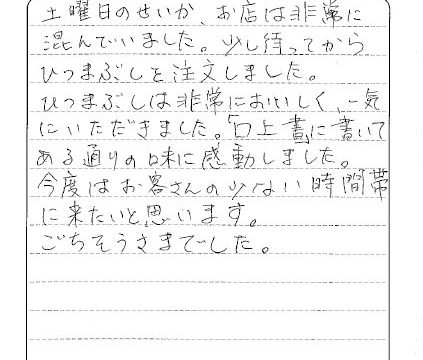 土曜日のせいか、お店は非常に
混んでいました。少し待ってから
ひつまぶしを注文しました。
ひつまぶしは非常においしく、一気
にいただきました。「口上書」に書いて
ある通りの味に感動しました。
今度はお客さんの少ない時間帯
に来たいと思います。
ごちそうさまでした。